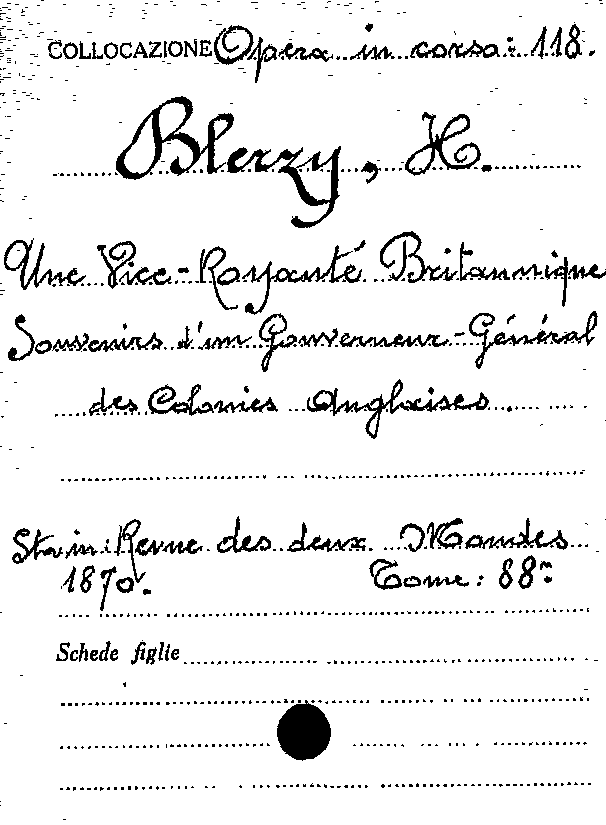 COLLOCAZIONE Opera in corso: 118.
Blerzy, H.
Une Vice-Royauté Britannique
Souvenirs d'un Gouverneur-Général
des Colonies Anglaises.
Sta in: Revue des deux Mondes
1870. Tome: 88m:
Schede figlie